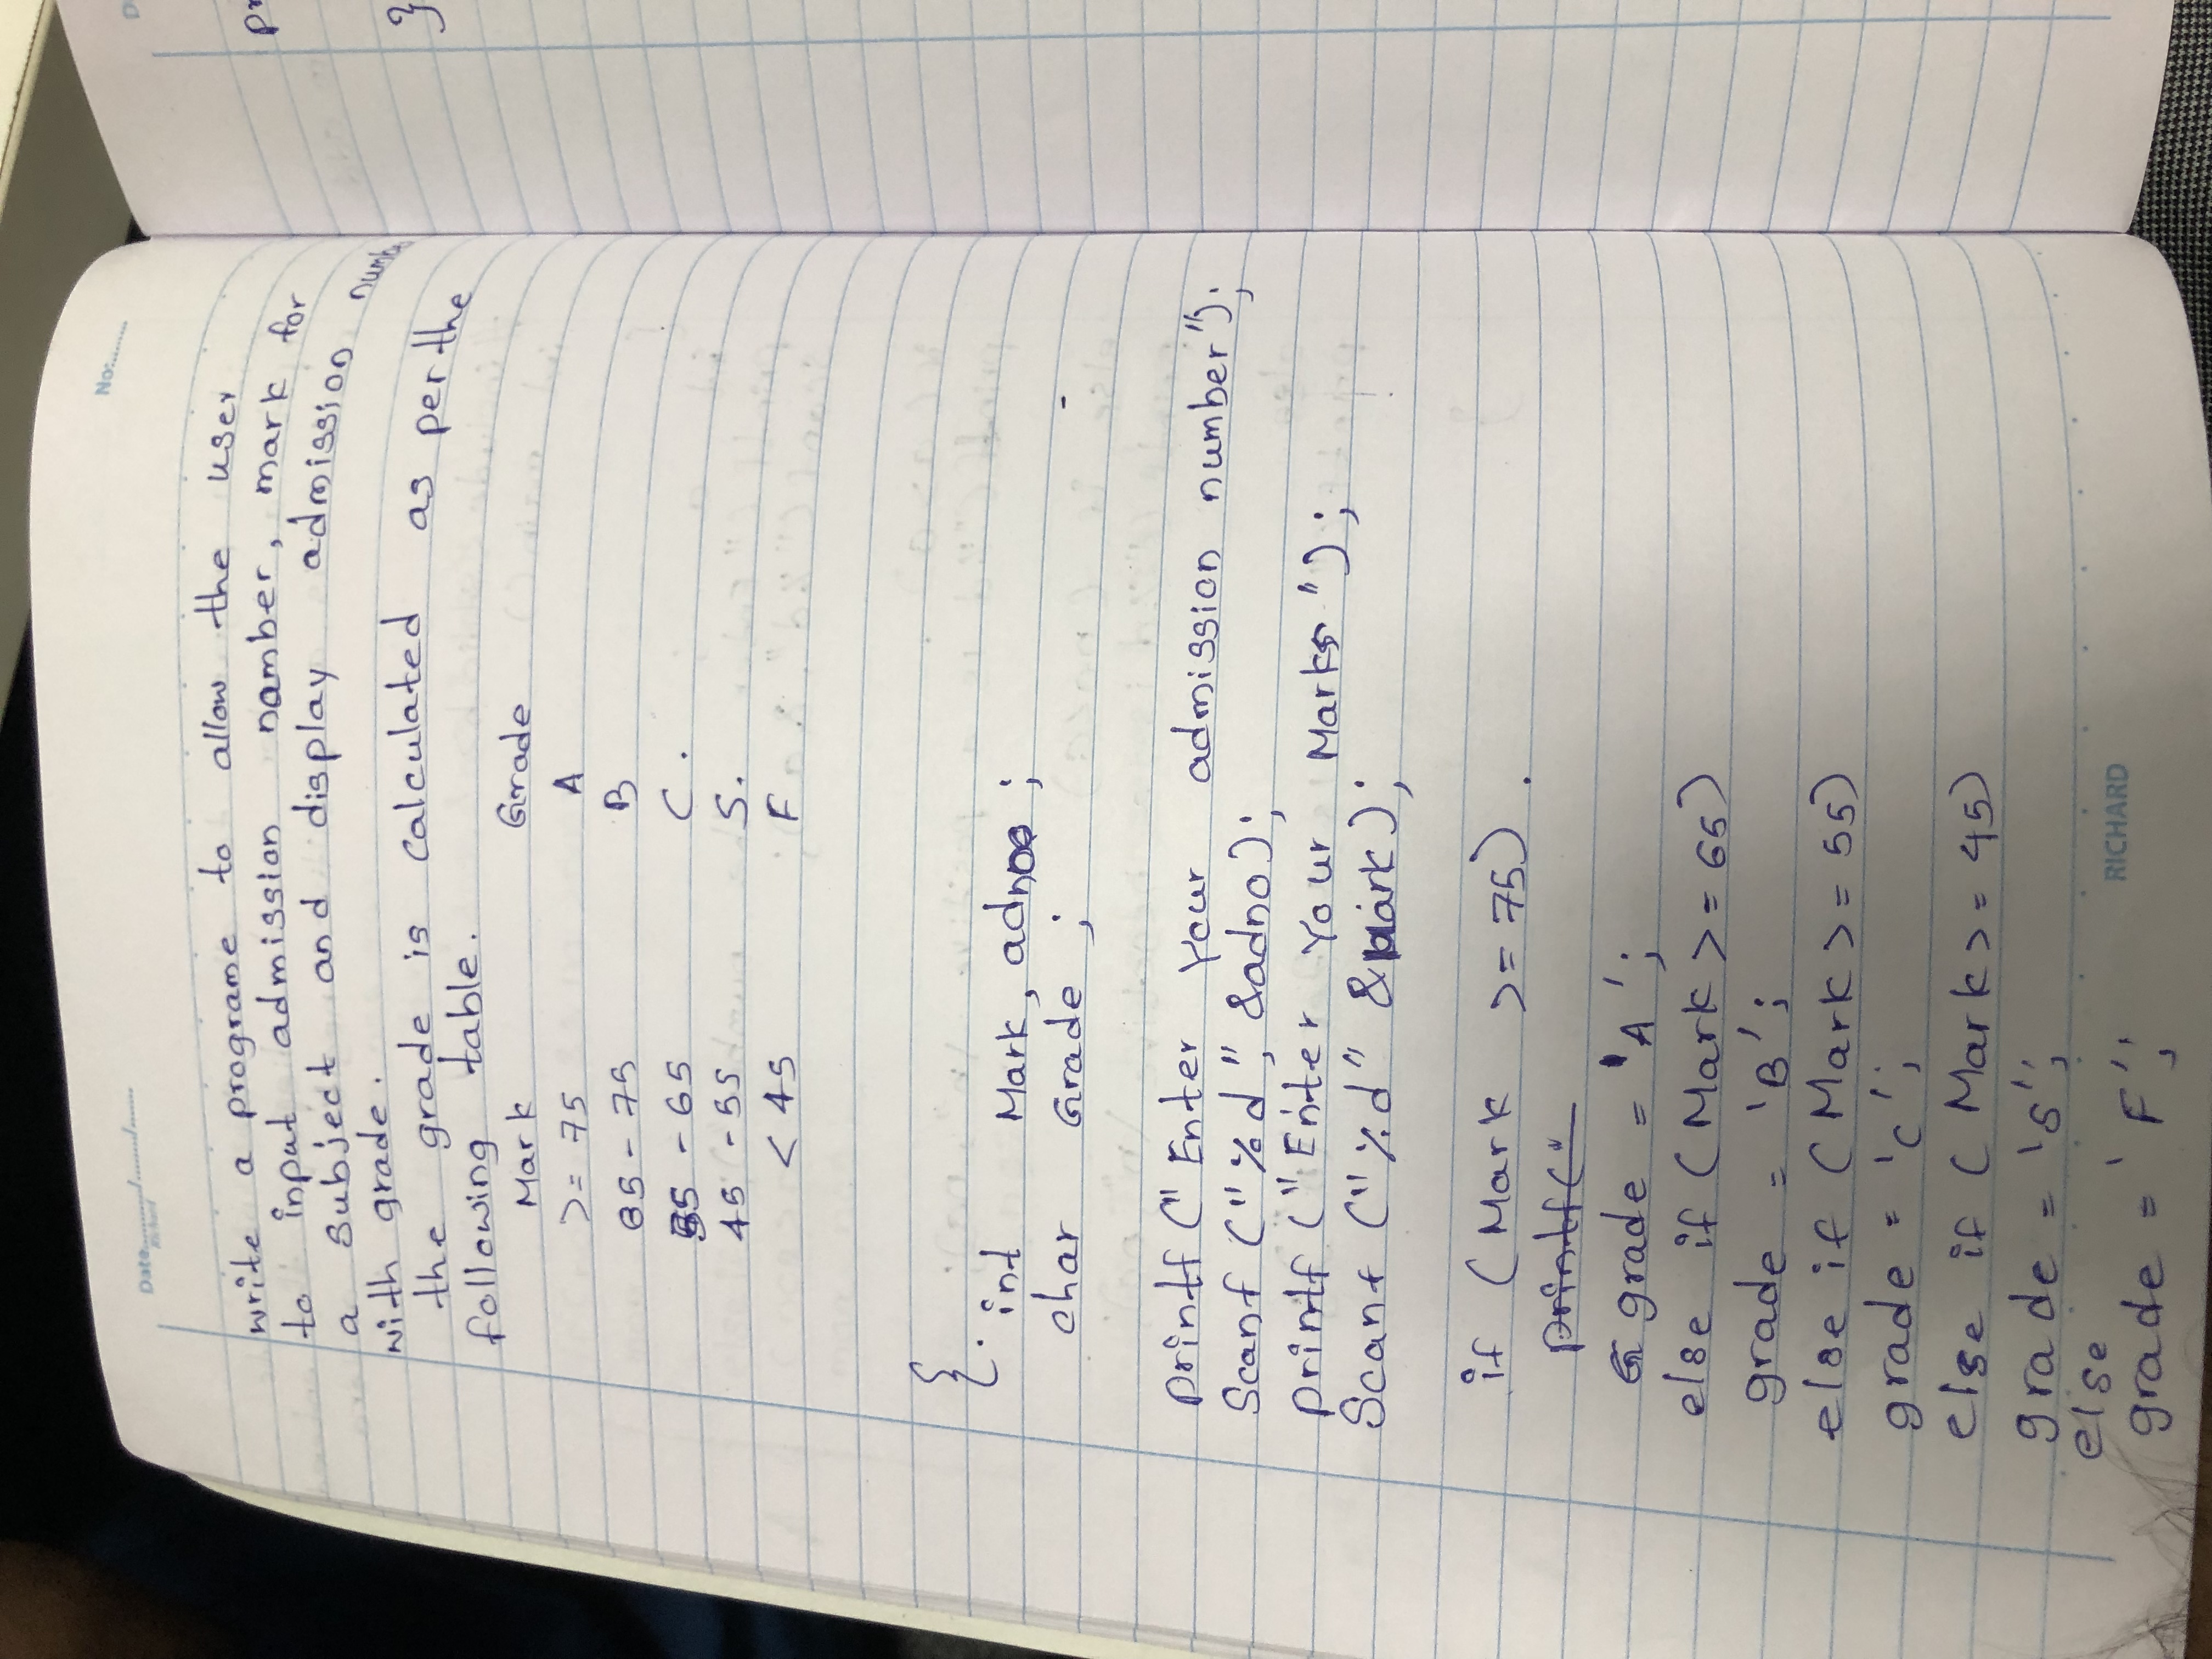 Date........../......../.......
Richard
No:........
write a programe to allow the user
to input admission namber, mark for
a subject and display admission number
with grade.
the grade is calculated as per the
following table.
Mark Grade
>= 75 A
65 - 75 B
55 - 65 C.
45 - 55 S.
< 45 F
{.
int Mark, adno ;
char Grade ;
printf (" Enter your admission number");
Scanf ("%d", &adno);
printf ("Enter Your Marks");
Scanf ("%d" &Mark);
if (Mark >= 75).
printf("
G grade = 'A';
else if (Mark >= 65)
grade = 'B';
else if (Mark >= 55)
grade = 'C';
else if (Mark >= 45)
grade = 'S';
else
grade = 'F';
RICHARD
pr
}